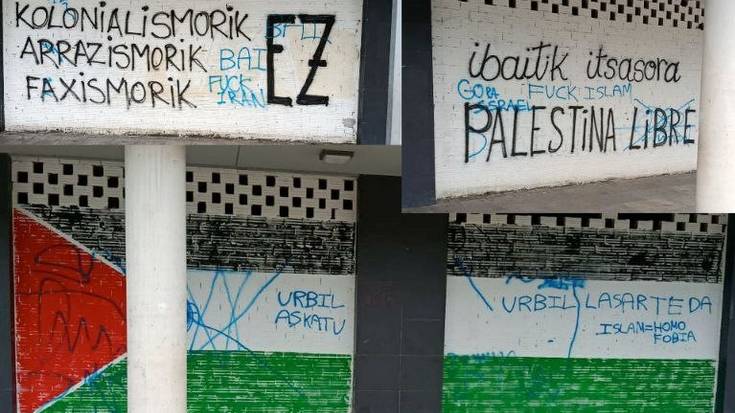 KOLONIALISMORIK
ARRAZISMORIK BAI
FAXISMORIK FUCK
IRAN
EZ
ibaitik itsasora
GORA FUCK ISLAM
ISRAEL
PALESTINA LIBRE
URBIL
ASKATU
URBIL LASARTE DA
ISLAN=HOMO
FOBIA